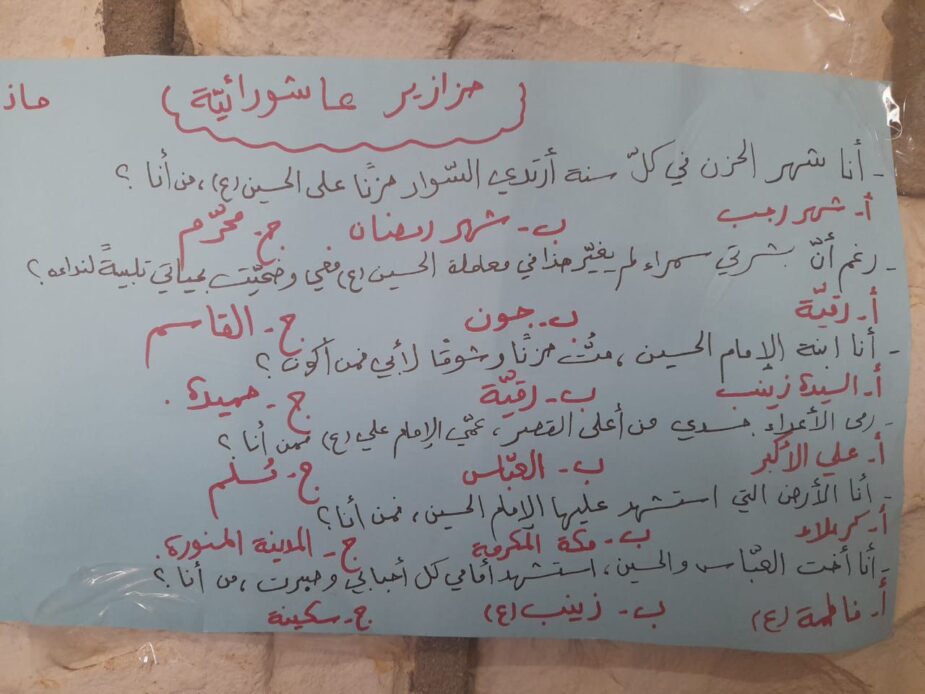 حزازير عاشورائيّة
ماذ
- أنا شهر الحزن في كلّ سنة أرتدي السّواد حزنًا على الحسين (ع)، من أنا ؟
أ- شهر رجب ب- شهر رمضان ج- محرّم
- رغم أنّ بشرتي سمراء لم يغيّر هذا في معاملة الحسين (ع) معي وضحّيت بحياتي تلبيةً لنداءه ؟
أ- رقيّة ب- جون ج- القاسم
- أنا ابنة الإمام الحسين، متُّ حزنًا وشوقًا لأبي فمن أكون ؟
أ- السيدة زينب ب- رقيّة ج- حميدة .
- رمى الأعداء جسدي من أعلى القصر، عمّي الإمام علي (ع) فمن أنا ؟
أ- علي الأكبر ب- العبّاس ج- مُسلم
- أنا الأرض التي استشهد عليها الإمام الحسين، فمن أنا؟
أ- كربلاء ب- مكة المكرمة ج- المدينة المنورة.
- أنا أخت العبّاس والحسين، استشهد أمامي كل أحبابي وصبرت، من أنا ؟
أ- فاطمة (ع) ب- زينب (ع) ج- سكينة